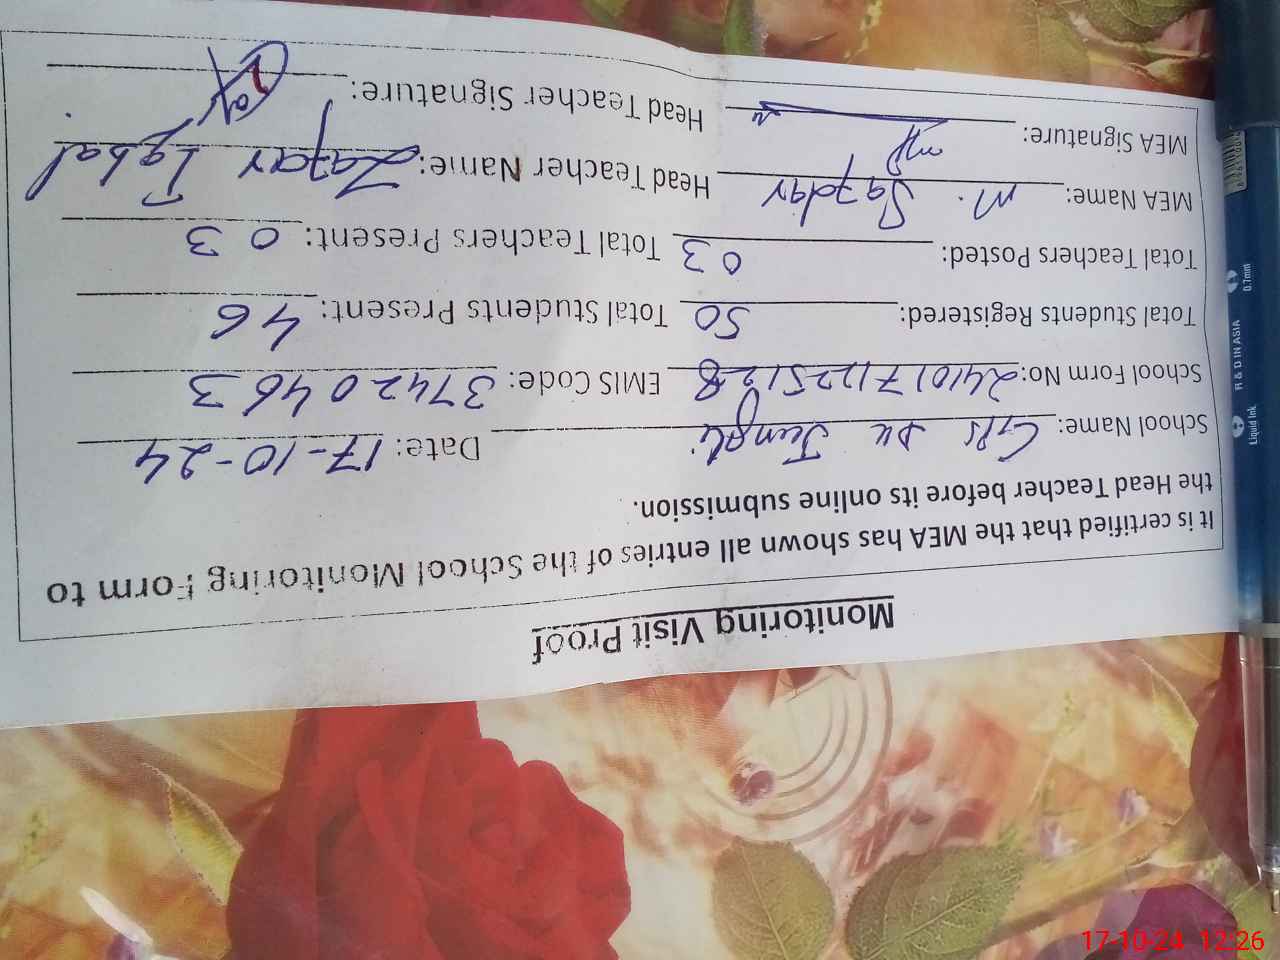 Monitoring Visit Proof
It is certified that the MEA has shown all entries of the School Monitoring Form to
the Head Teacher before its online submission.
School Name: GPS Du Jungli Date: 17-10-24
School Form No: 241017112251228 EMIS Code: 37420463
Total Students Registered: 50 Total Students Present: 46
Total Teachers Posted: 03 Total Teachers Present: 03
MEA Name: M. Safdar Head Teacher Name: Zafar Iqbal
MEA Signature: Head Teacher Signature:
Liquid Ink R & D IN ASIA 0.7mm
17-10-24 12:26